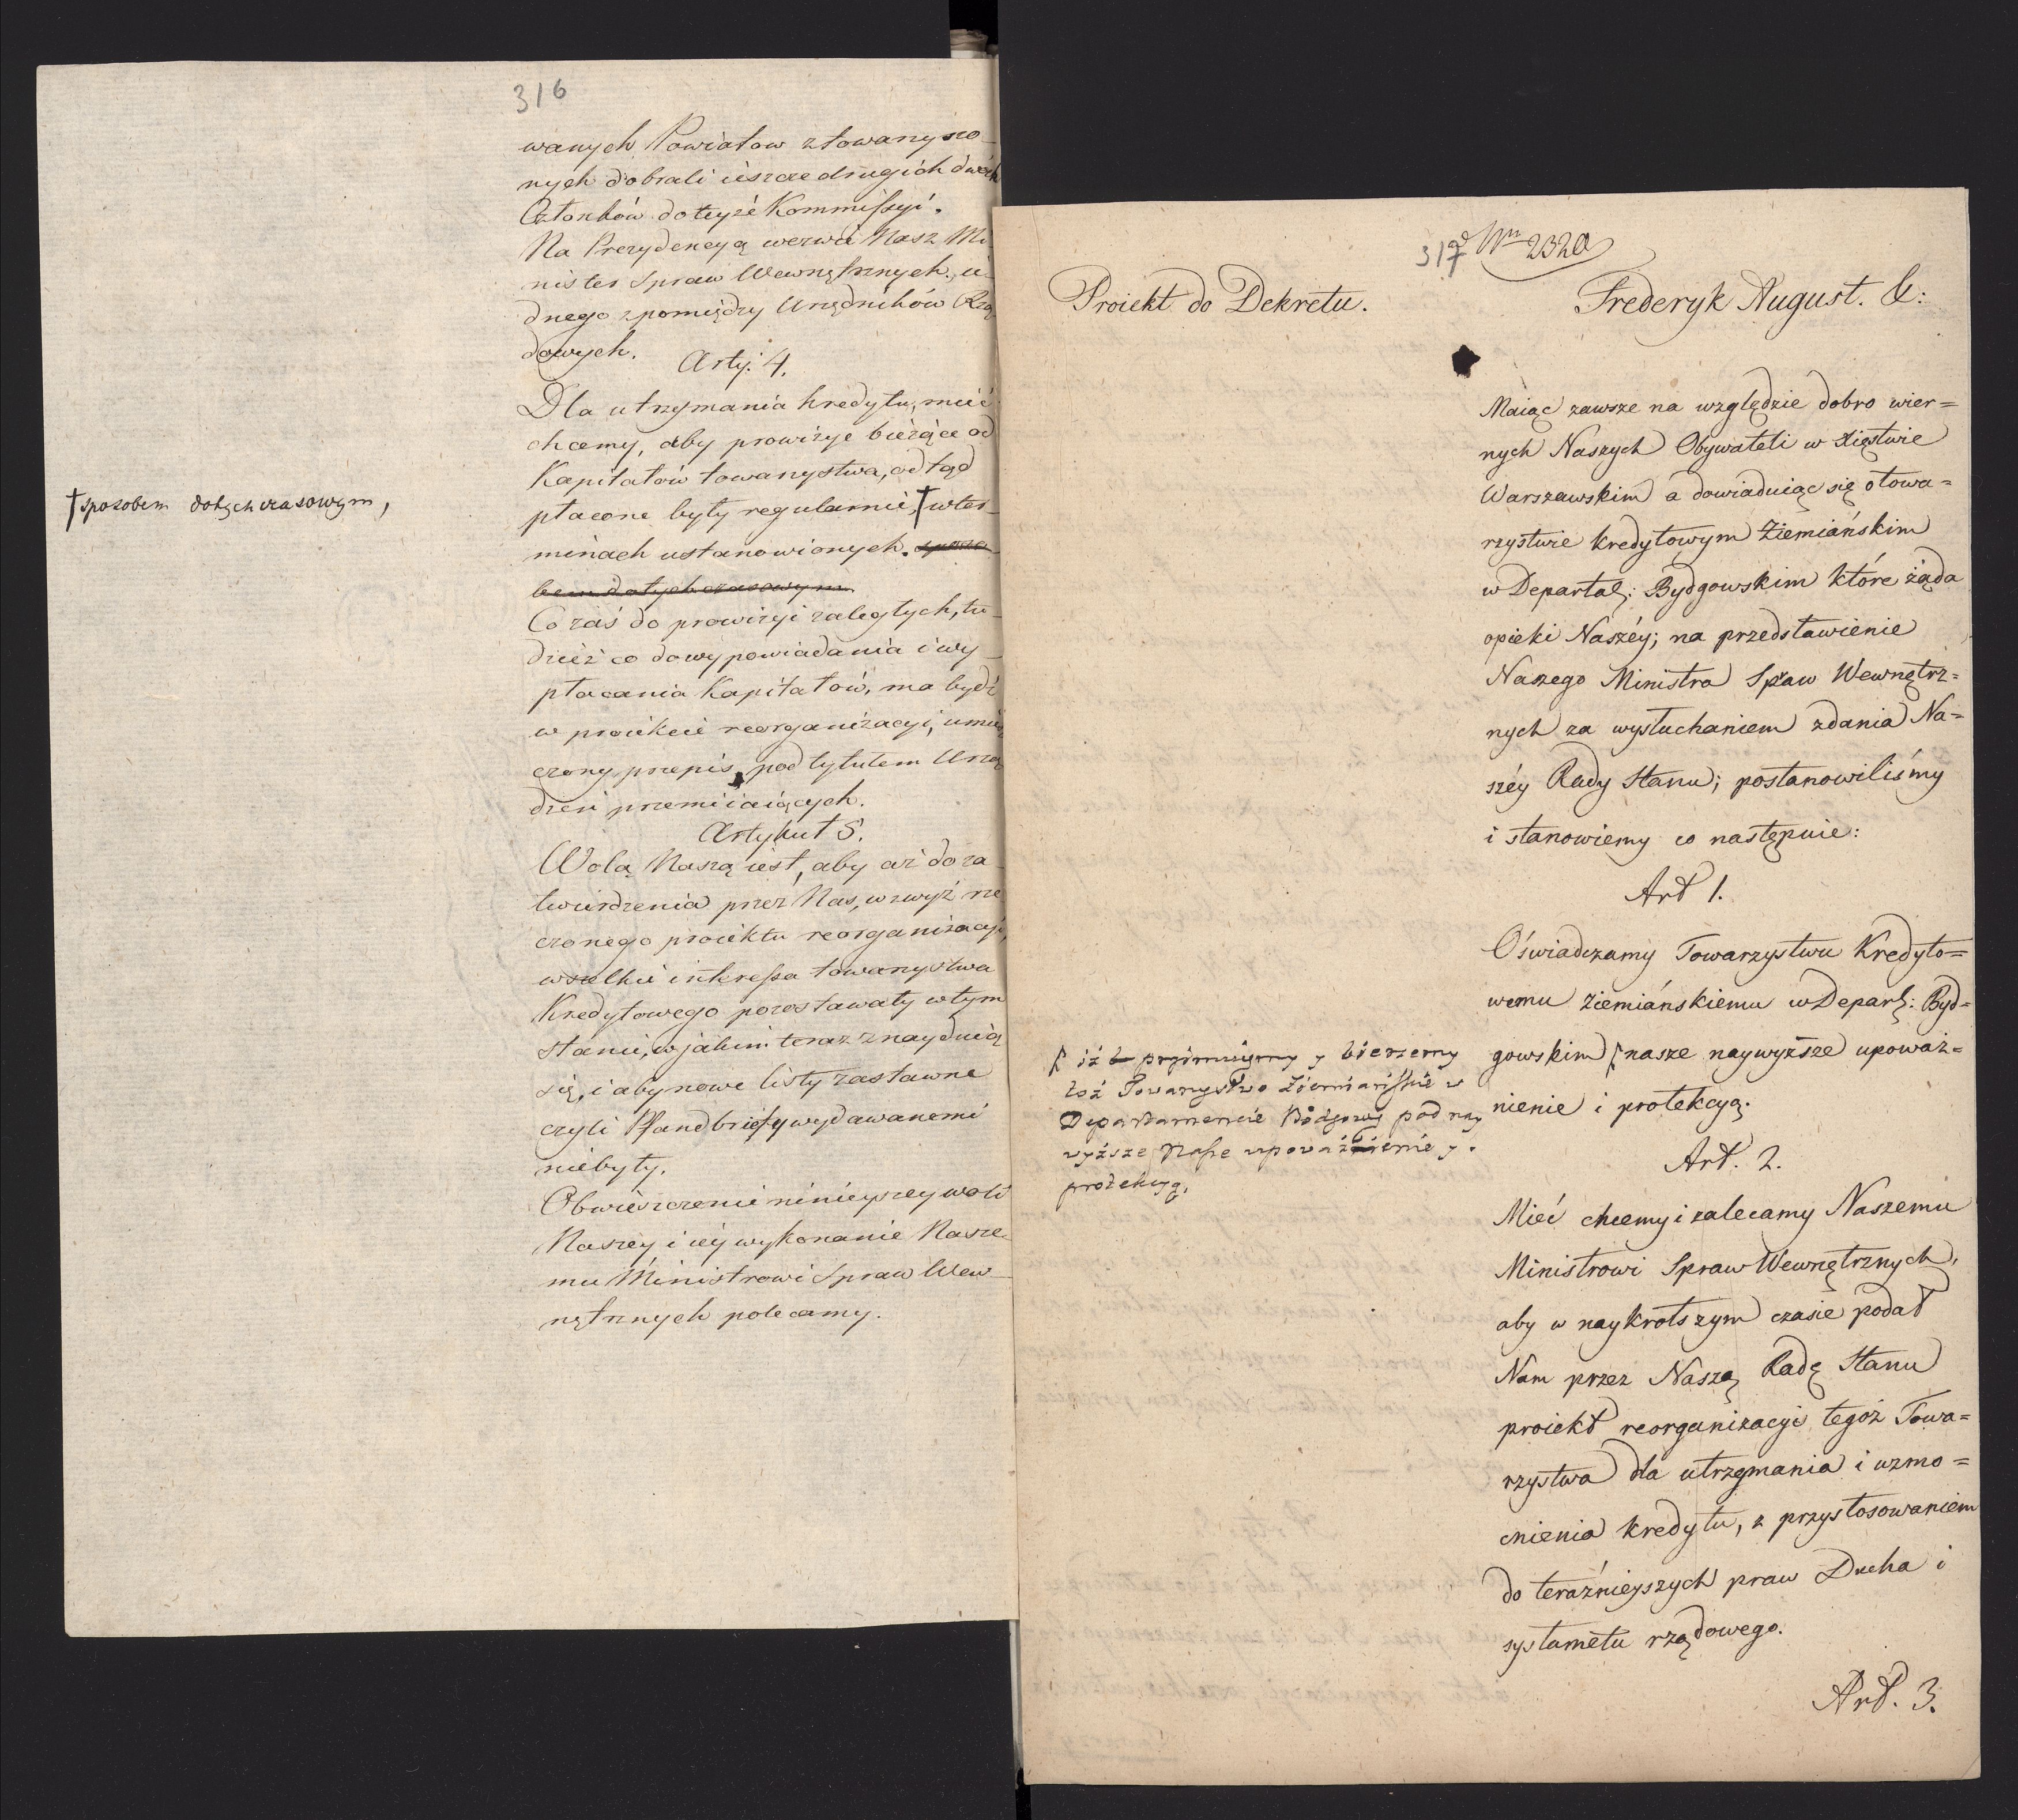 316
wanych Powiatow ztowarzyszo-
nych dobrali ieszcze drugich dwóch
Członków do teyże Kommissyi.
Na Prezydencyą wezwie Nasz Mi-
nister Spraw Wewnętrznych, ie-
dnego zpomiędzy Urzędników Rzą-
dowych.
Arty: 4.
Dla utrzymania kredytu, mieć
chcemy, aby prowizye bieżące od
Kapitałów towarzystwa, odtąd
płacone były regularnie, † wter-
minach ustanowionych. sposo-
bem dotychczasowym
† sposobem dotychczasowym,
Co zaś do prowizyi zaległych, tu-
dzież co do wypowiadania i wy-
płacania Kapitałów, ma bydź
w proiekcie reorganizacyi, umie-
czony przepis, pod tytułem Urzą-
dzeń przemiiaiących.
Artykuł 5.
Wolą Naszą iest, aby aż do za-
twierdzenia przez Nas, wzwyż rze-
czonego proiektu reorganizacyi,
wszelkie interessa towarzystwa
Kredytowego pozostawały wtym
stanie, w jakim teraz znayduią
się, i aby nowe listy zastawne
czyli Pfandbriefy wydawanemi
niebyły.
Obwieszczenie ninieyszey woli
Naszey i iéy wykonanie Nasze-
mu Ministrowi Spraw Wew-
nętrznych polecamy.
317 Nrn 2320
Proiekt do Dekretu.
Frederyk August. &:
Maiąc zawsze na względzie dobro wier=
nych Naszych Obywateli w Xięstwie
Warszawskim a dowiaduiąc się o towa=
rzystwie kredytowym Ziemiańskim
w Departat: Bydgowskim które żąda
opieki Naszéy; na przedstawienie
Naszego Ministra Spraw Wewnętrz=
nych za wysłuchaniem zdania Na=
széy Rady Stanu; postanowiliśmy
i stanowiemy co następuie:
Art 1.
Oświadczamy Towarzystwu Kredyto=
wemu Ziemiańskiemu w Depart: Byd=
gowskim nasze naywyższe upoważ=
nienie i protekcyą.
iż przimuiemy y bierzemy
toż Towarzystwo Ziemiańskie w
Departamencie Bydgows pod nay
wyższe Nasze upoważnienie y
protekcyą,
Art. 2.
Mieć chcemy i zalecamy Naszemu
Ministrowi Spraw Wewnętrznych,
aby w naykrótszym czasie podał
Nam przez Naszą Radę Stanu
proiekt reorganizacyi tegoż Towa=
rzystwa dla utrzymania i uzmo=
cnienia kredytu, z przystosowaniem
do teraźnieyszych praw Ducha i
systametu rządowego.
Art. 3.